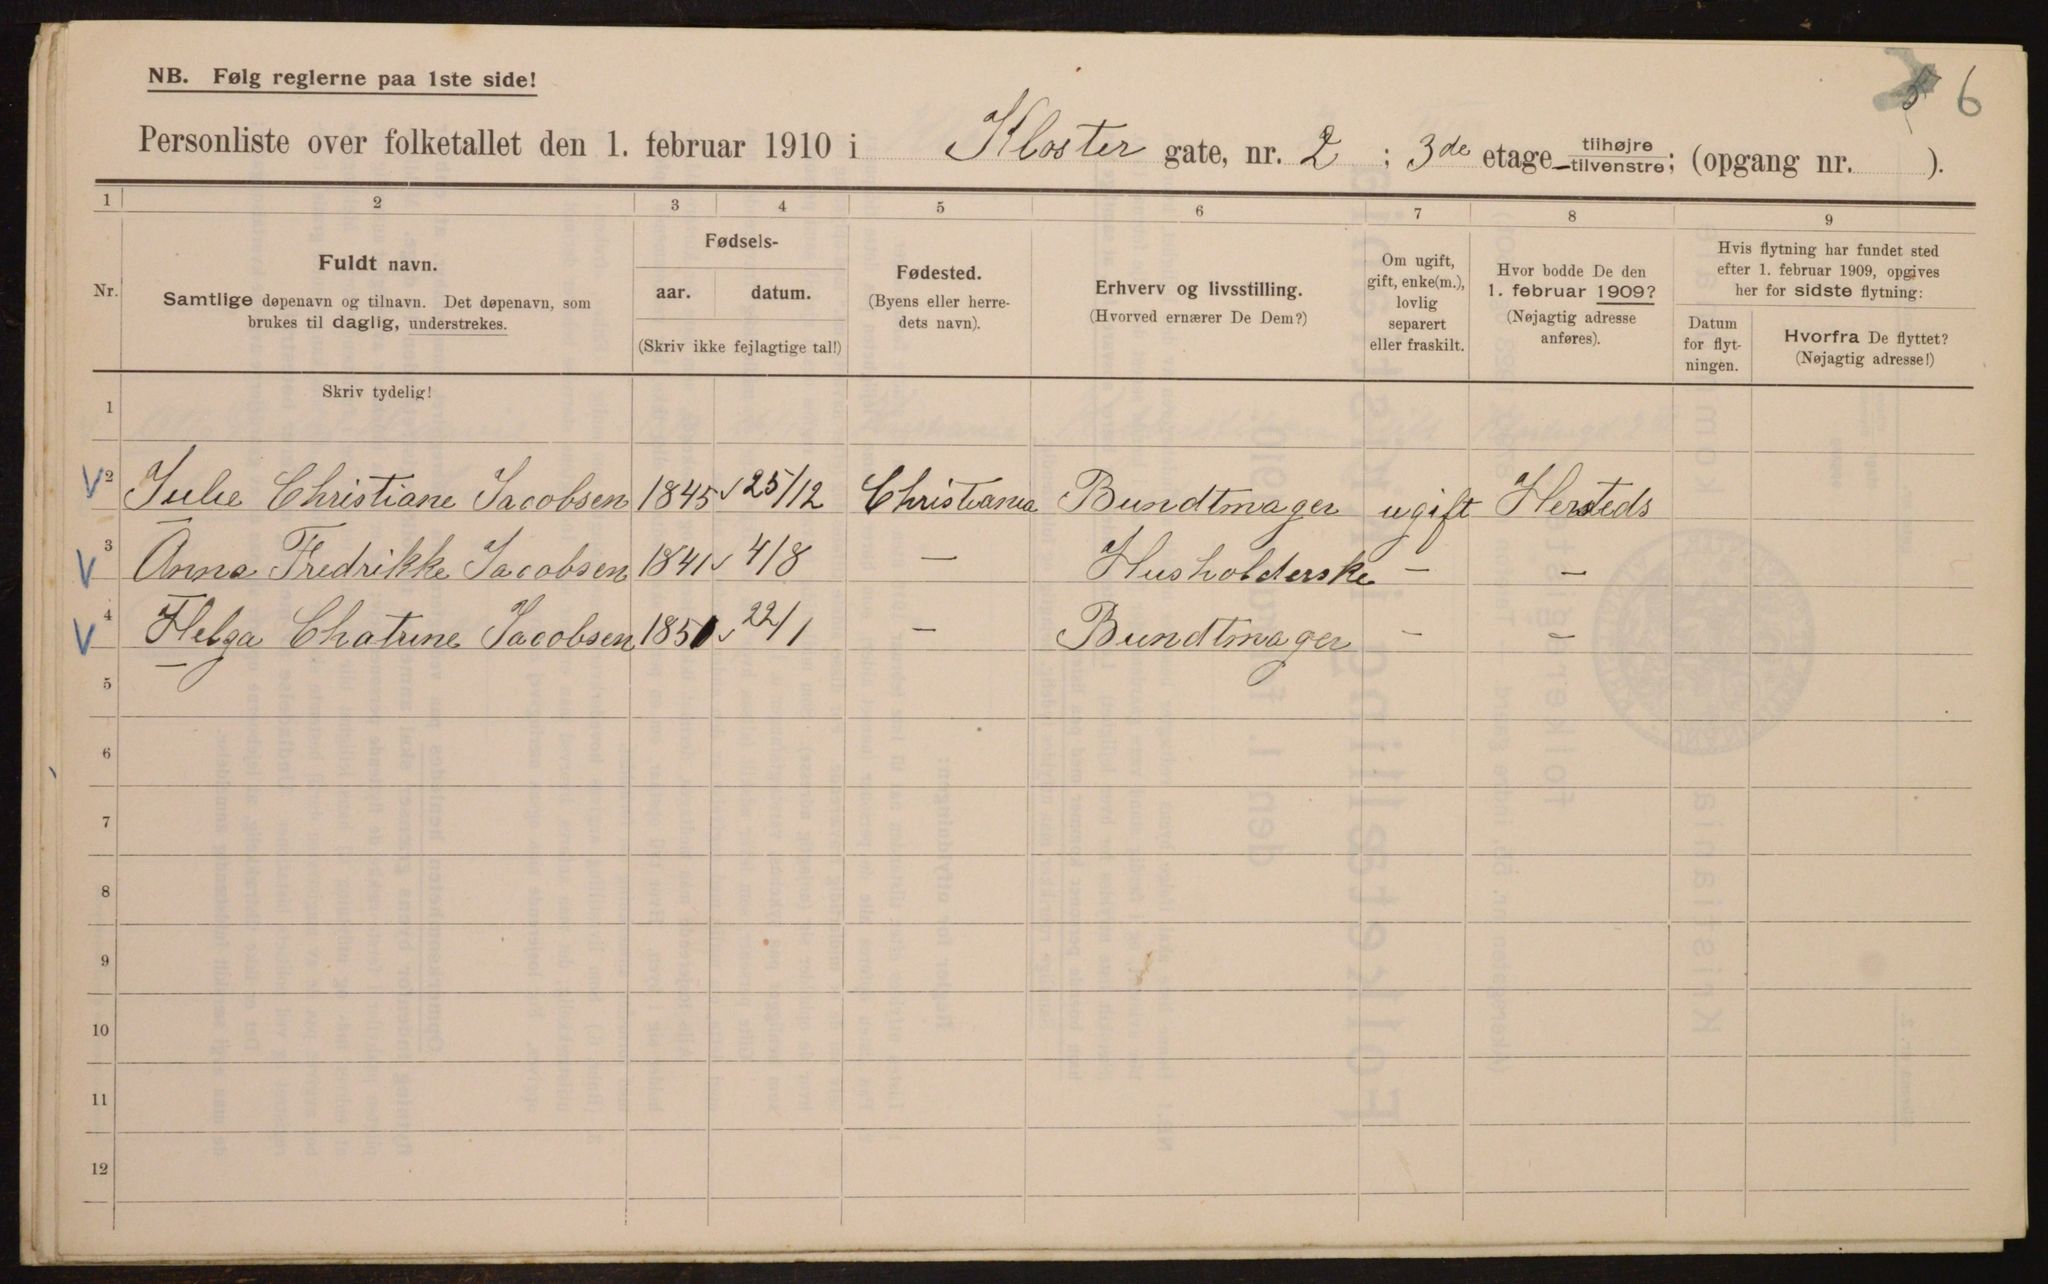 5 6
NB. Følg reglerne paa 1ste side!
Personliste over folketallet den 1. februar 1910 i Kloster gate, nr. 2 ; 3de etage tilhøjre tilvenstre; (opgang nr. ).
1 2 3 4 5 6 7 8 9
Nr.
Fuldt navn.
Samtlige døpenavn og tilnavn. Det døpenavn, som
brukes til daglig, understrekes.
Fødsels-
aar. datum.
(Skriv ikke fejlagtige tal!)
Fødested.
(Byens eller herre-
dets navn).
Erhverv og livsstilling.
(Hvorved ernærer De Dem?)
Om ugift,
gift, enke(m.),
lovlig
separert
eller fraskilt.
Hvor bodde De den
1. februar 1909?
(Nøjagtig adresse
anføres).
Hvis flytning har fundet sted
efter 1. februar 1909, opgives
her for sidste flytning:
Datum
for flyt-
ningen.
Hvorfra De flyttet?
(Nøjagtig adresse!)
Skriv tydelig!
1
2 Julie Christiane Jacobsen 1845 25/12 Christiania Bundtmager ugift Hersteds
3 Anna Fredrikke Jacobsen 1841 4/8 — Husholderske — —
4 Helga Chatrine Jacobsen 1851 22/1 — Bundtmager — —
5
6
7
8
9
10
11
12